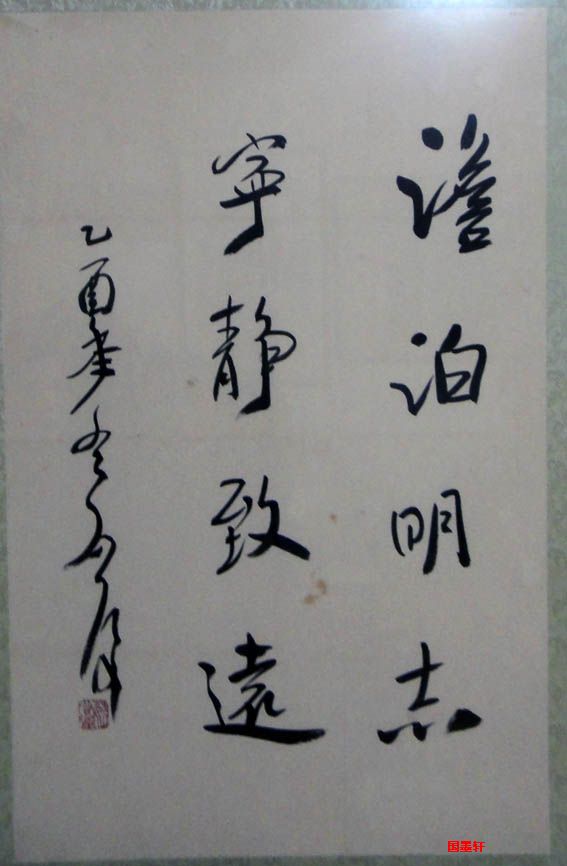 澹泊明志
寧靜致遠
乙酉年冬
国墨轩